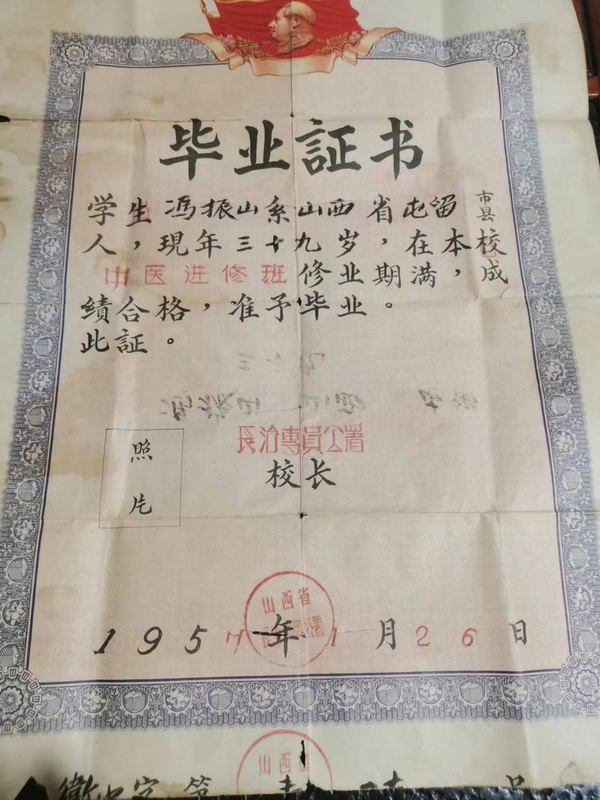 毕业証书
学生冯振山系山西省屯留市县
人，現年三十九岁，在本校
中医进修班修业期满，成
績合格，准予毕业。
此証。
長治專員公署
照片
校长
山西省
1957年1月26日
山西省
衛中字第
号